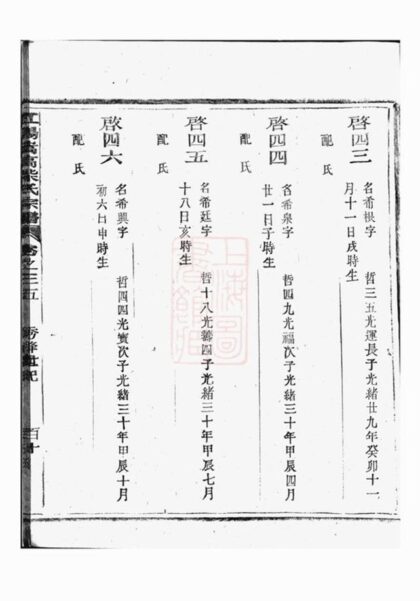 啓四三
名希根字 哲三五光運長子光緒廿九年癸卯十一
月十一日戌時生
配氏
啓四四
名希泉字 哲四九光福次子光緒三十年甲辰四月
廿一日子時生
配氏
啓四五
名希廷字 哲十八光壽四子光緒三十年甲辰七月
十八日亥時生
配氏
啟四六
名希興字 哲四四光寅次子光緒三十年甲辰十月
初六日申時生
配氏
柴氏宗譜 卷之三五 世紀